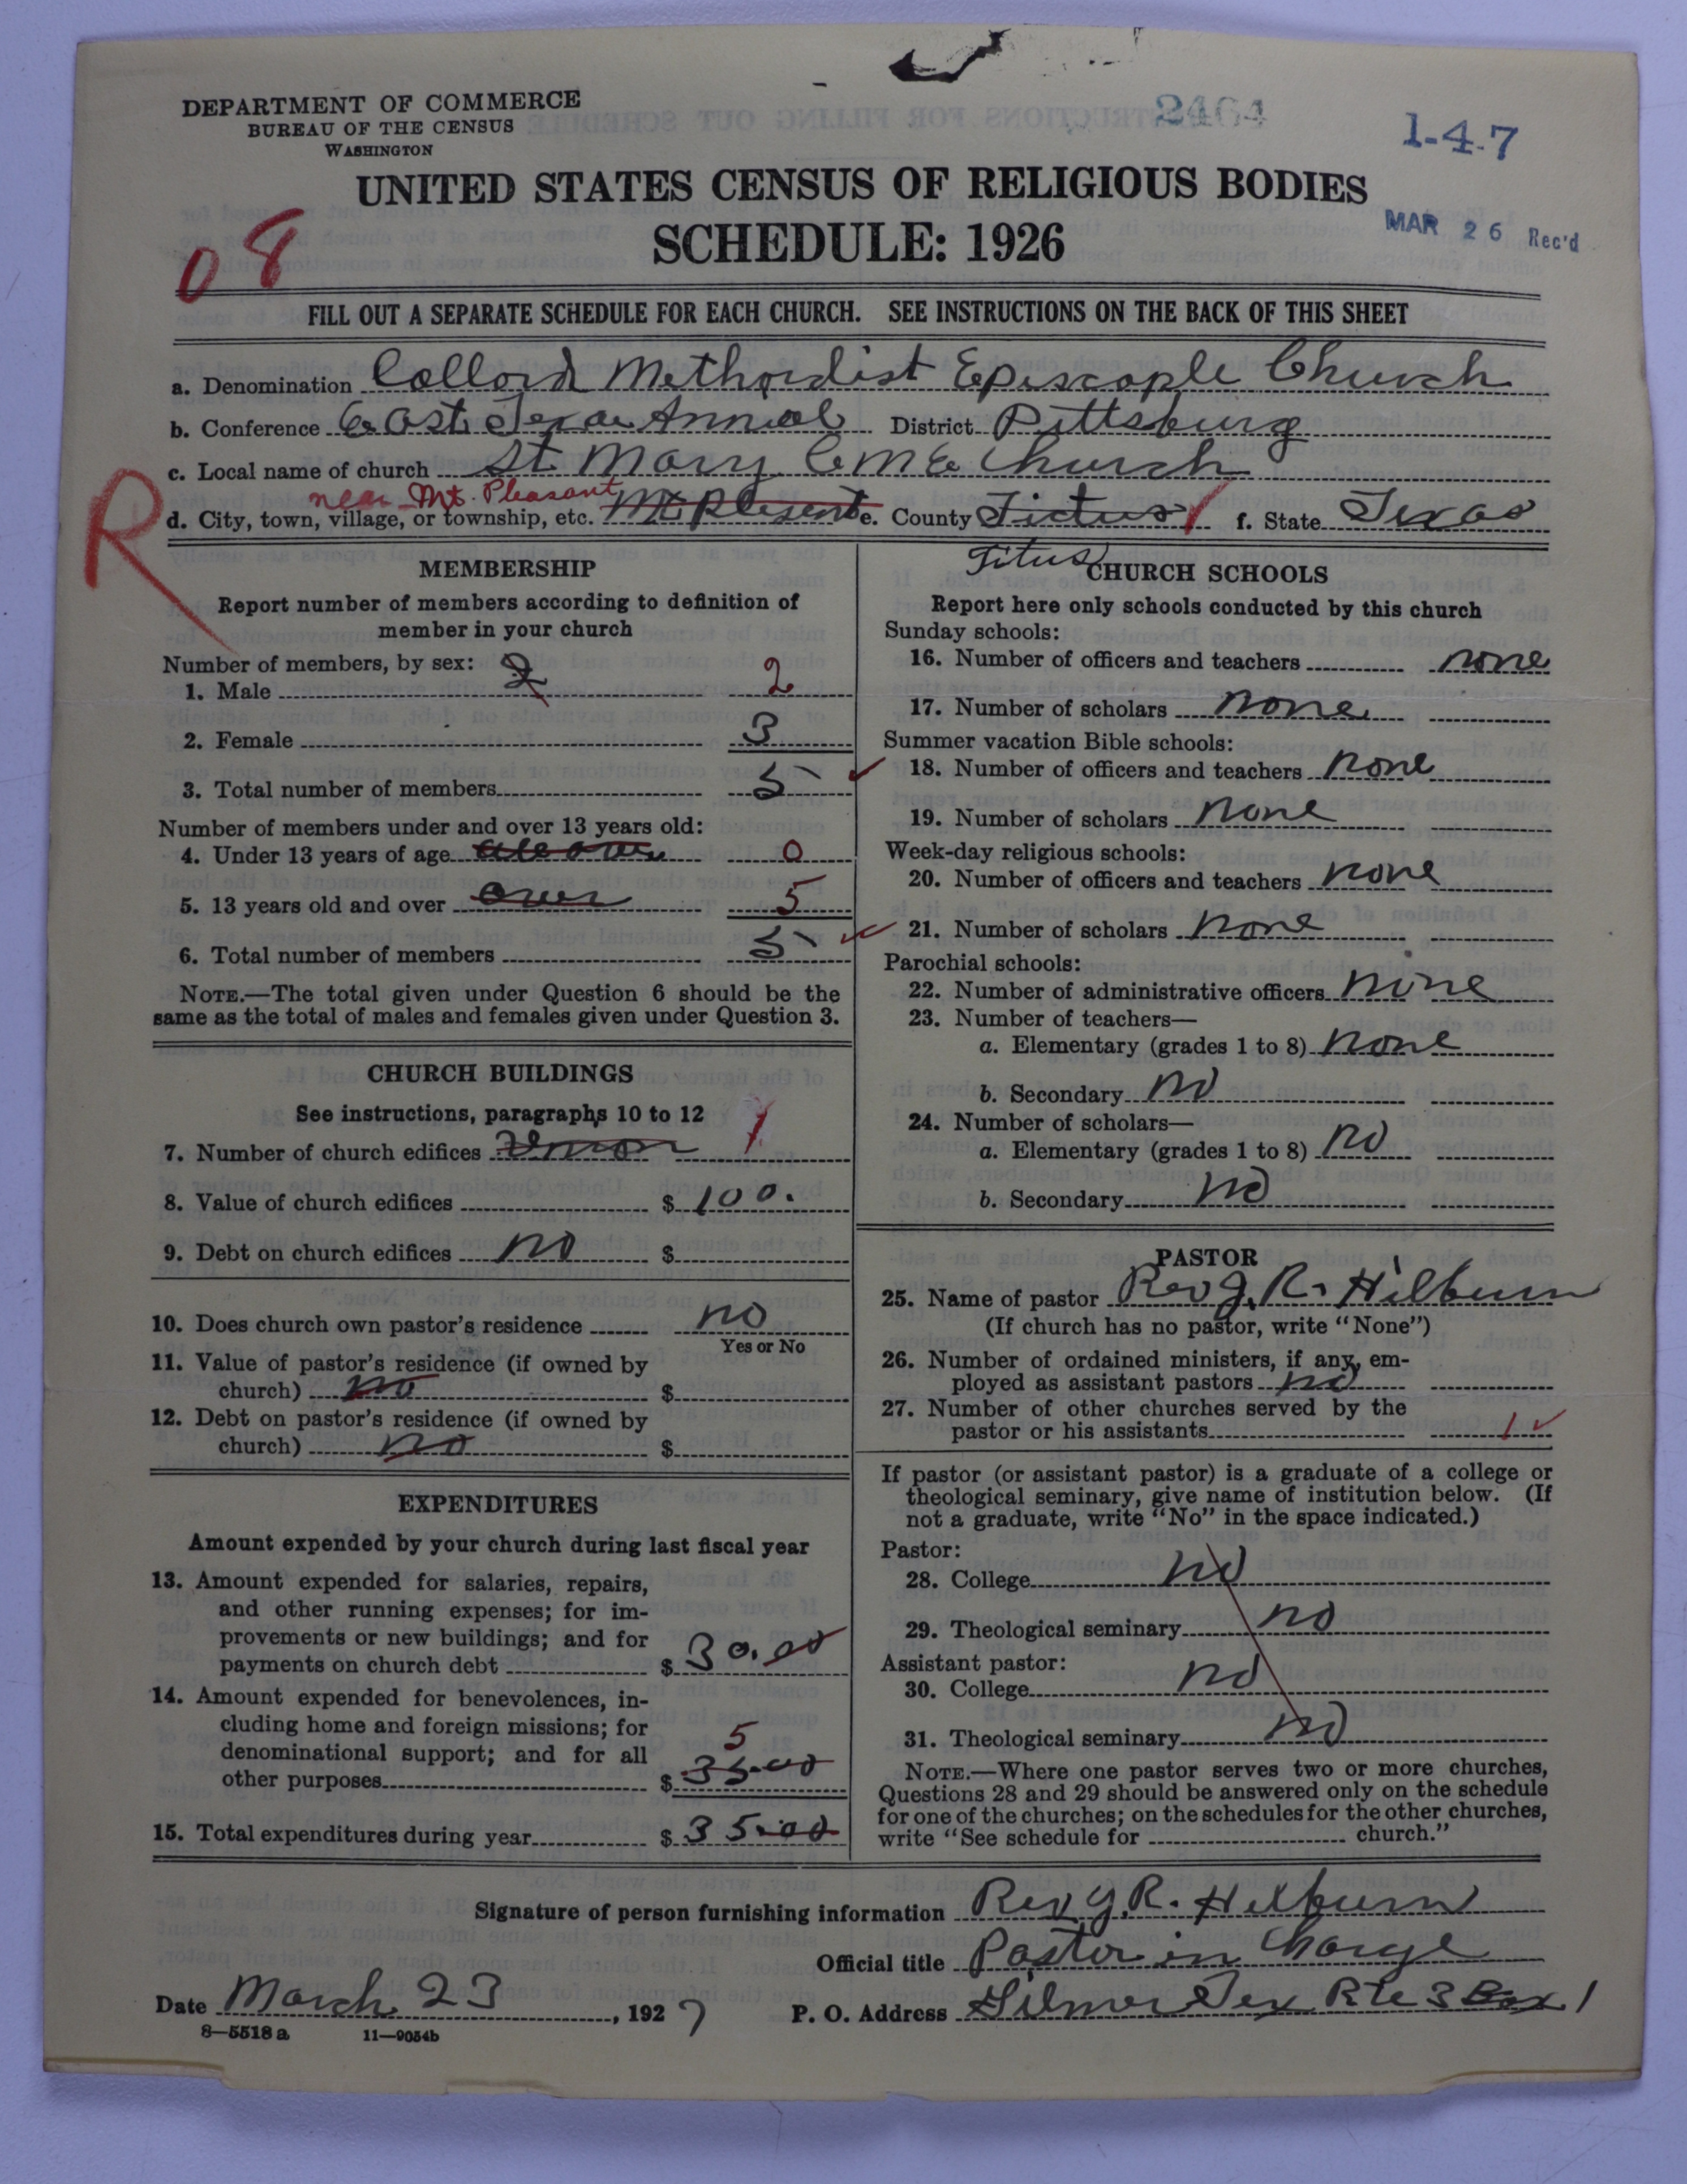 DEPARTMENT OF COMMERCE
BUREAU OF THE CENSUS
WASHINGTON
2464
1-4-7
UNITED STATES CENSUS OF RELIGIOUS BODIES
SCHEDULE: 1926
MAR 26 Rec'd
08
FILL OUT A SEPARATE SCHEDULE FOR EACH CHURCH. SEE INSTRUCTIONS ON THE BACK OF THIS SHEET
a. Denomination Collord Methordist Episcople Church
b. Conference East Texas Annual District Pittsburg
c. Local name of church St Mary C M E Church
near Mt. Pleasant
R
d. City, town, village, or township, etc. Mt Plesent e. County Tictus f. State Texas
Titus
MEMBERSHIP
Report number of members according to definition of
member in your church
Number of members, by sex: 2
1. Male 2
2. Female 3
3. Total number of members 5
Number of members under and over 13 years old:
4. Under 13 years of age all over 0
5. 13 years old and over over 5
6. Total number of members 5
NOTE.—The total given under Question 6 should be the
same as the total of males and females given under Question 3.
CHURCH BUILDINGS
See instructions, paragraphs 10 to 12
7. Number of church edifices 1
8. Value of church edifices $ 100.
9. Debt on church edifices no $
10. Does church own pastor's residence no
Yes or No
11. Value of pastor's residence (if owned by
church) no $
12. Debt on pastor's residence (if owned by
church) no $
EXPENDITURES
Amount expended by your church during last fiscal year
13. Amount expended for salaries, repairs,
and other running expenses; for im-
provements or new buildings; and for
payments on church debt $ 30.00
14. Amount expended for benevolences, in-
cluding home and foreign missions; for
denominational support; and for all 5
other purposes $ 35.00
15. Total expenditures during year $ 35.00
CHURCH SCHOOLS
Report here only schools conducted by this church
Sunday schools:
16. Number of officers and teachers none
17. Number of scholars none
Summer vacation Bible schools:
18. Number of officers and teachers none
19. Number of scholars none
Week-day religious schools:
20. Number of officers and teachers none
21. Number of scholars none
Parochial schools:
22. Number of administrative officers none
23. Number of teachers—
a. Elementary (grades 1 to 8) none
b. Secondary no
24. Number of scholars—
a. Elementary (grades 1 to 8) no
b. Secondary no
PASTOR
25. Name of pastor Rev J. R. Hilburn
(If church has no pastor, write "None")
26. Number of ordained ministers, if any, em-
ployed as assistant pastors no
27. Number of other churches served by the
pastor or his assistants 1
If pastor (or assistant pastor) is a graduate of a college or
theological seminary, give name of institution below. (If
not a graduate, write "No" in the space indicated.)
Pastor:
28. College no
29. Theological seminary no
Assistant pastor:
30. College no
31. Theological seminary no
NOTE.—Where one pastor serves two or more churches,
Questions 28 and 29 should be answered only on the schedule
for one of the churches; on the schedules for the other churches,
write "See schedule for church."
Signature of person furnishing information Rev J. R. Hilburn
Official title Pastor in Charge
Date March 23, 1927 P. O. Address Gilmer Tex Rte 3 Box 1
8-5518 a 11-9054b